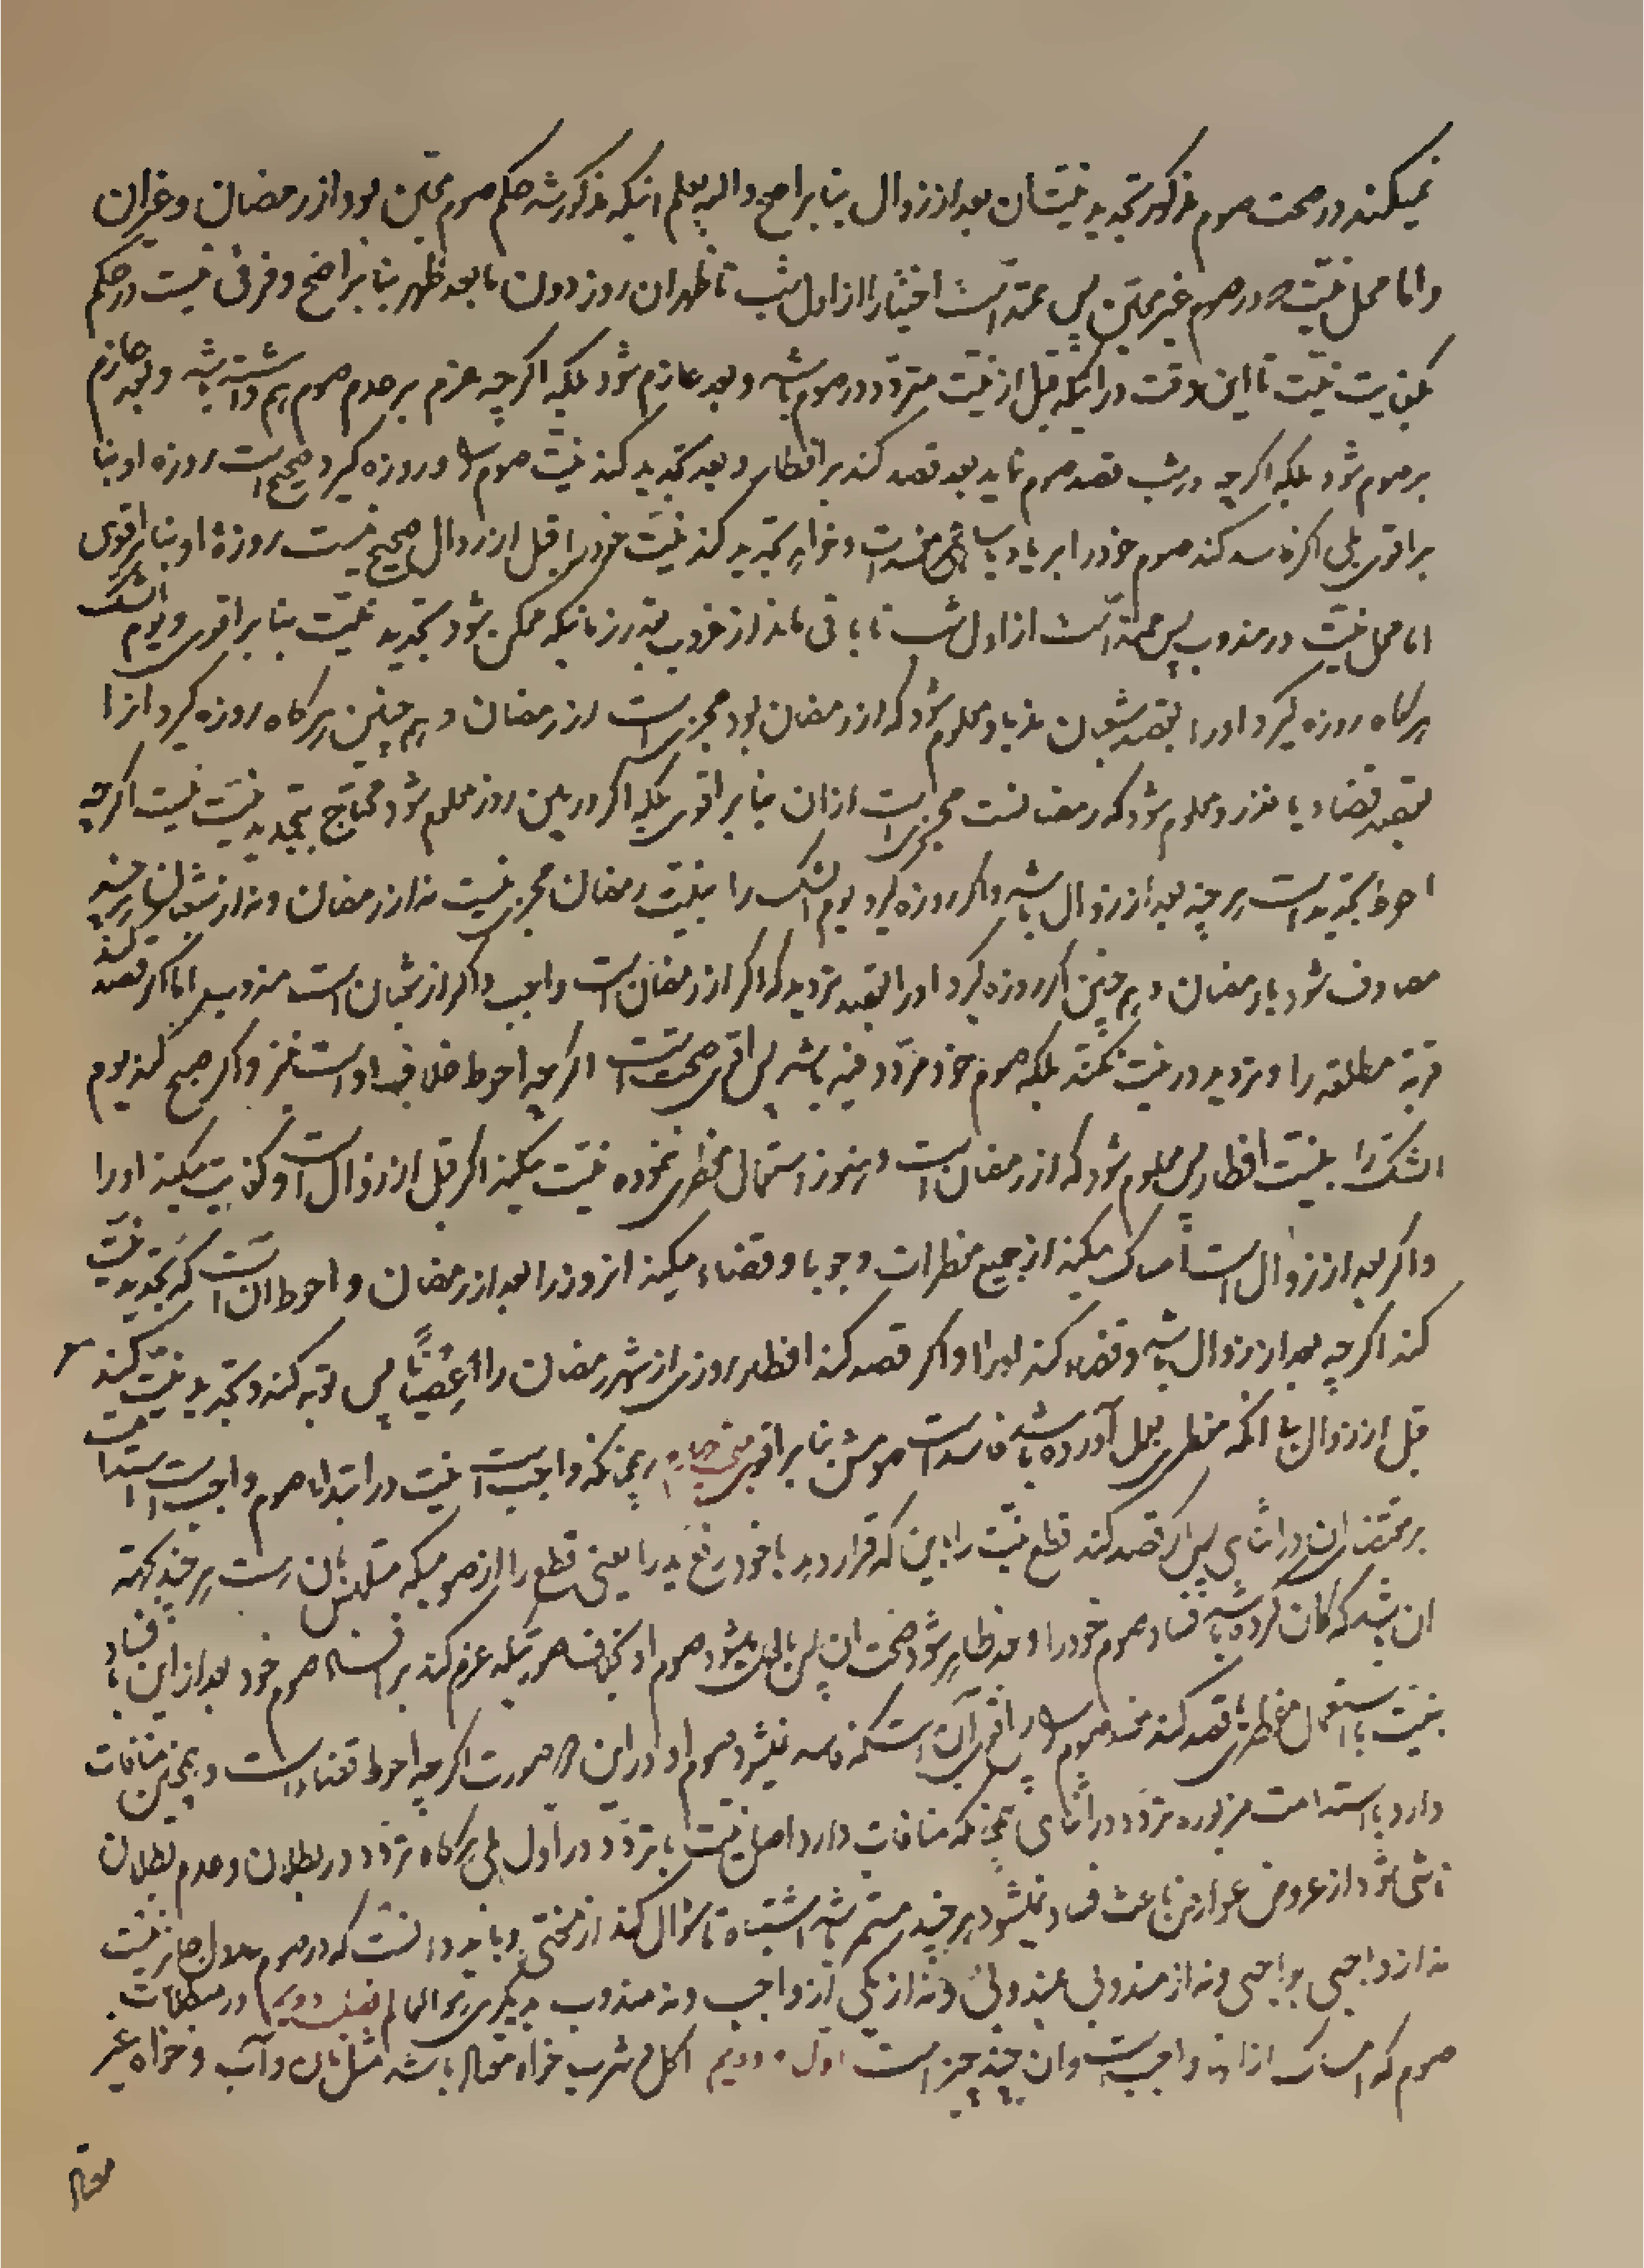 نمیکند در صحت صوم مذکور تجدید نیتشان بعد از زوال بنا بر اصح والله یعلم اینکه مذکور شد حکم صوم معیّن بود از رمضان و غیر ان
و اما محل نیت در صوم غیر معیّن پس ممتد است اختیارا از اول شب تا ظهر ان روز دون ما بعد ظهر بنا بر اصح و فرقی نیست در حکم
بکفایت نیّت تا این وقت در اینکه قبل از نیّت متردّد در صوم باشد و بعد عازم شود بلکه اکرچه عزم بر عدم صوم هم داشته باشد و بعد جازم
بر صوم شود بلکه اکرچه در شب قصد صوم نماید بعد قصد کند بر افطار و بعد تجدید کند نیّت صوم را و روزه کیرد صحیح است روزه او بنا
بر اقوی بلی اکر فاسد کند صوم خود را بریا و یا سایر مفسدات و خواهد تجدید کند نیّت خود را قبل از زوال صحیح نیست روزۀ او بنا بر اقوی
اما محل نیّت در مندوب پس ممتدّ است از اول شب تا باقی ماند از غروب بقدر زمانیکه ممکن شود تجدید نیّت بنا بر اقوی و یوم الشک
هرکاه روزه کیرد او را بقصد شعبان ندبا و معلوم شود که از رمضان بود مجزی است از رمضان و هم چنین هرکاه روزه کیرد انرا
بقصد قضاء یا نذر و معلوم شود که رمضانست مجزی است از ان بنا بر اقوی بلکه اکر در بین روز معلوم شود محتاج بتجدید نیّت نیست اکرچه
احوط تجدید است هر چند بعد از زوال باشد و اکر روزه کیرد یوم الشک را بنیّت رمضان مجزی نیست نه از رمضان و نه از شعبان هر چند
مصادف شود با رمضان و هم چنین اکر روزه کیرد او را بقصد تردید که اکر از رمضان است واجب و اکر از شعبان است مندوب اما اکر قصد کند
قربة مطلقه را و تردید در نیت نکند بلکه صوم خود مردّد فیه باشد پس اقوی صحت است اکرچه احوط خلاف او است نیز و اکر صبح کند یوم
الشک را بنیّت افطار پس معلوم شود که از رمضان است و هنوز استعمال مفطری ننموده نیّت میکند اکر قبل از زوال است و کفایت میکند او را
و اکر بعد از زوال است امساک میکند از جمیع مفطرات وجوبا و قضاء میکند انروز را بعد از رمضان و احوط ان است که تجدید نیّت
کند اکرچه بعد از زوال باشد و قضاء کند او را و اکر قصد کند افطار روزی از شهر رمضان را عصیانًا پس توبه کند و تجدید نیّت کند
قبل از زوال با انکه مفطری بعمل آورده باشد فاسد است صومش بنا بر اقوی همچنانکه واجب است نیت در ابتداء صوم واجب است استدامت
بر مقتضای ان در اثنای پس اکر قصد کند قطع نیّت را باین که قرار دهد با خود رفع ید را یعنی قطع را از صومیکه متلبس بان است هر چند بجهة
ان باشد که کمان کرده باشد فساد صوم خود را و بعد ظاهر شود صحت ان پس باطل میشود صوم او بخلاف صورتیکه عزم کند بر افساد صوم خود بعد از این یا
بنیّت یا استعمال مفطری قصد کند مفسد صوم را پس اقوی آن است که فاسد نمیشود صوم او در این دو صورت اکرچه احوط قضاء است و همچنین منافات
دارد با استدامت مزبوره تردّد در اثنای همچنانکه منافات دارد اصل نیّت با تردّد در اول بلی هرکاه تردد در بطلان و عدم بطلان
ناشی شود از عروض عوارض باعث فساد نمیشود هر چند مستمر باشد اشتباه تا سؤال کند از مفتی و باید دانست که در صوم عدول جایز نیست
نه از واجبی بواجبی و نه از مندوبی بمندوبی و نه از یکی از واجب و نه مندوب بدیکری والله العالم فصل دویم در مبطلات
صوم که امساک از انها واجب است و ان چند چیز است اول و دویم اکل و شرب خواه معتاد باشد مثل نان و آب و خواه غیر
معتاد